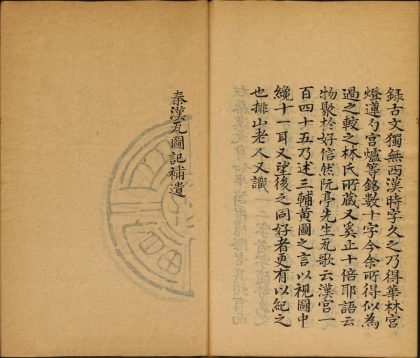 錄古文獨無西漢時字久之乃得華林宮
燈蓮勺宮爐等銘數十字今余所得似為
過之較之林氏所藏又奚止十倍耶語云
物聚於好信然阮亭先生瓦歌云漢宮一
百四十五乃述三輔黃圖之言以視圖中
纔十一耳又望後之同好者更有以紀之
也排山老人又識
秦漢瓦圖記補遺